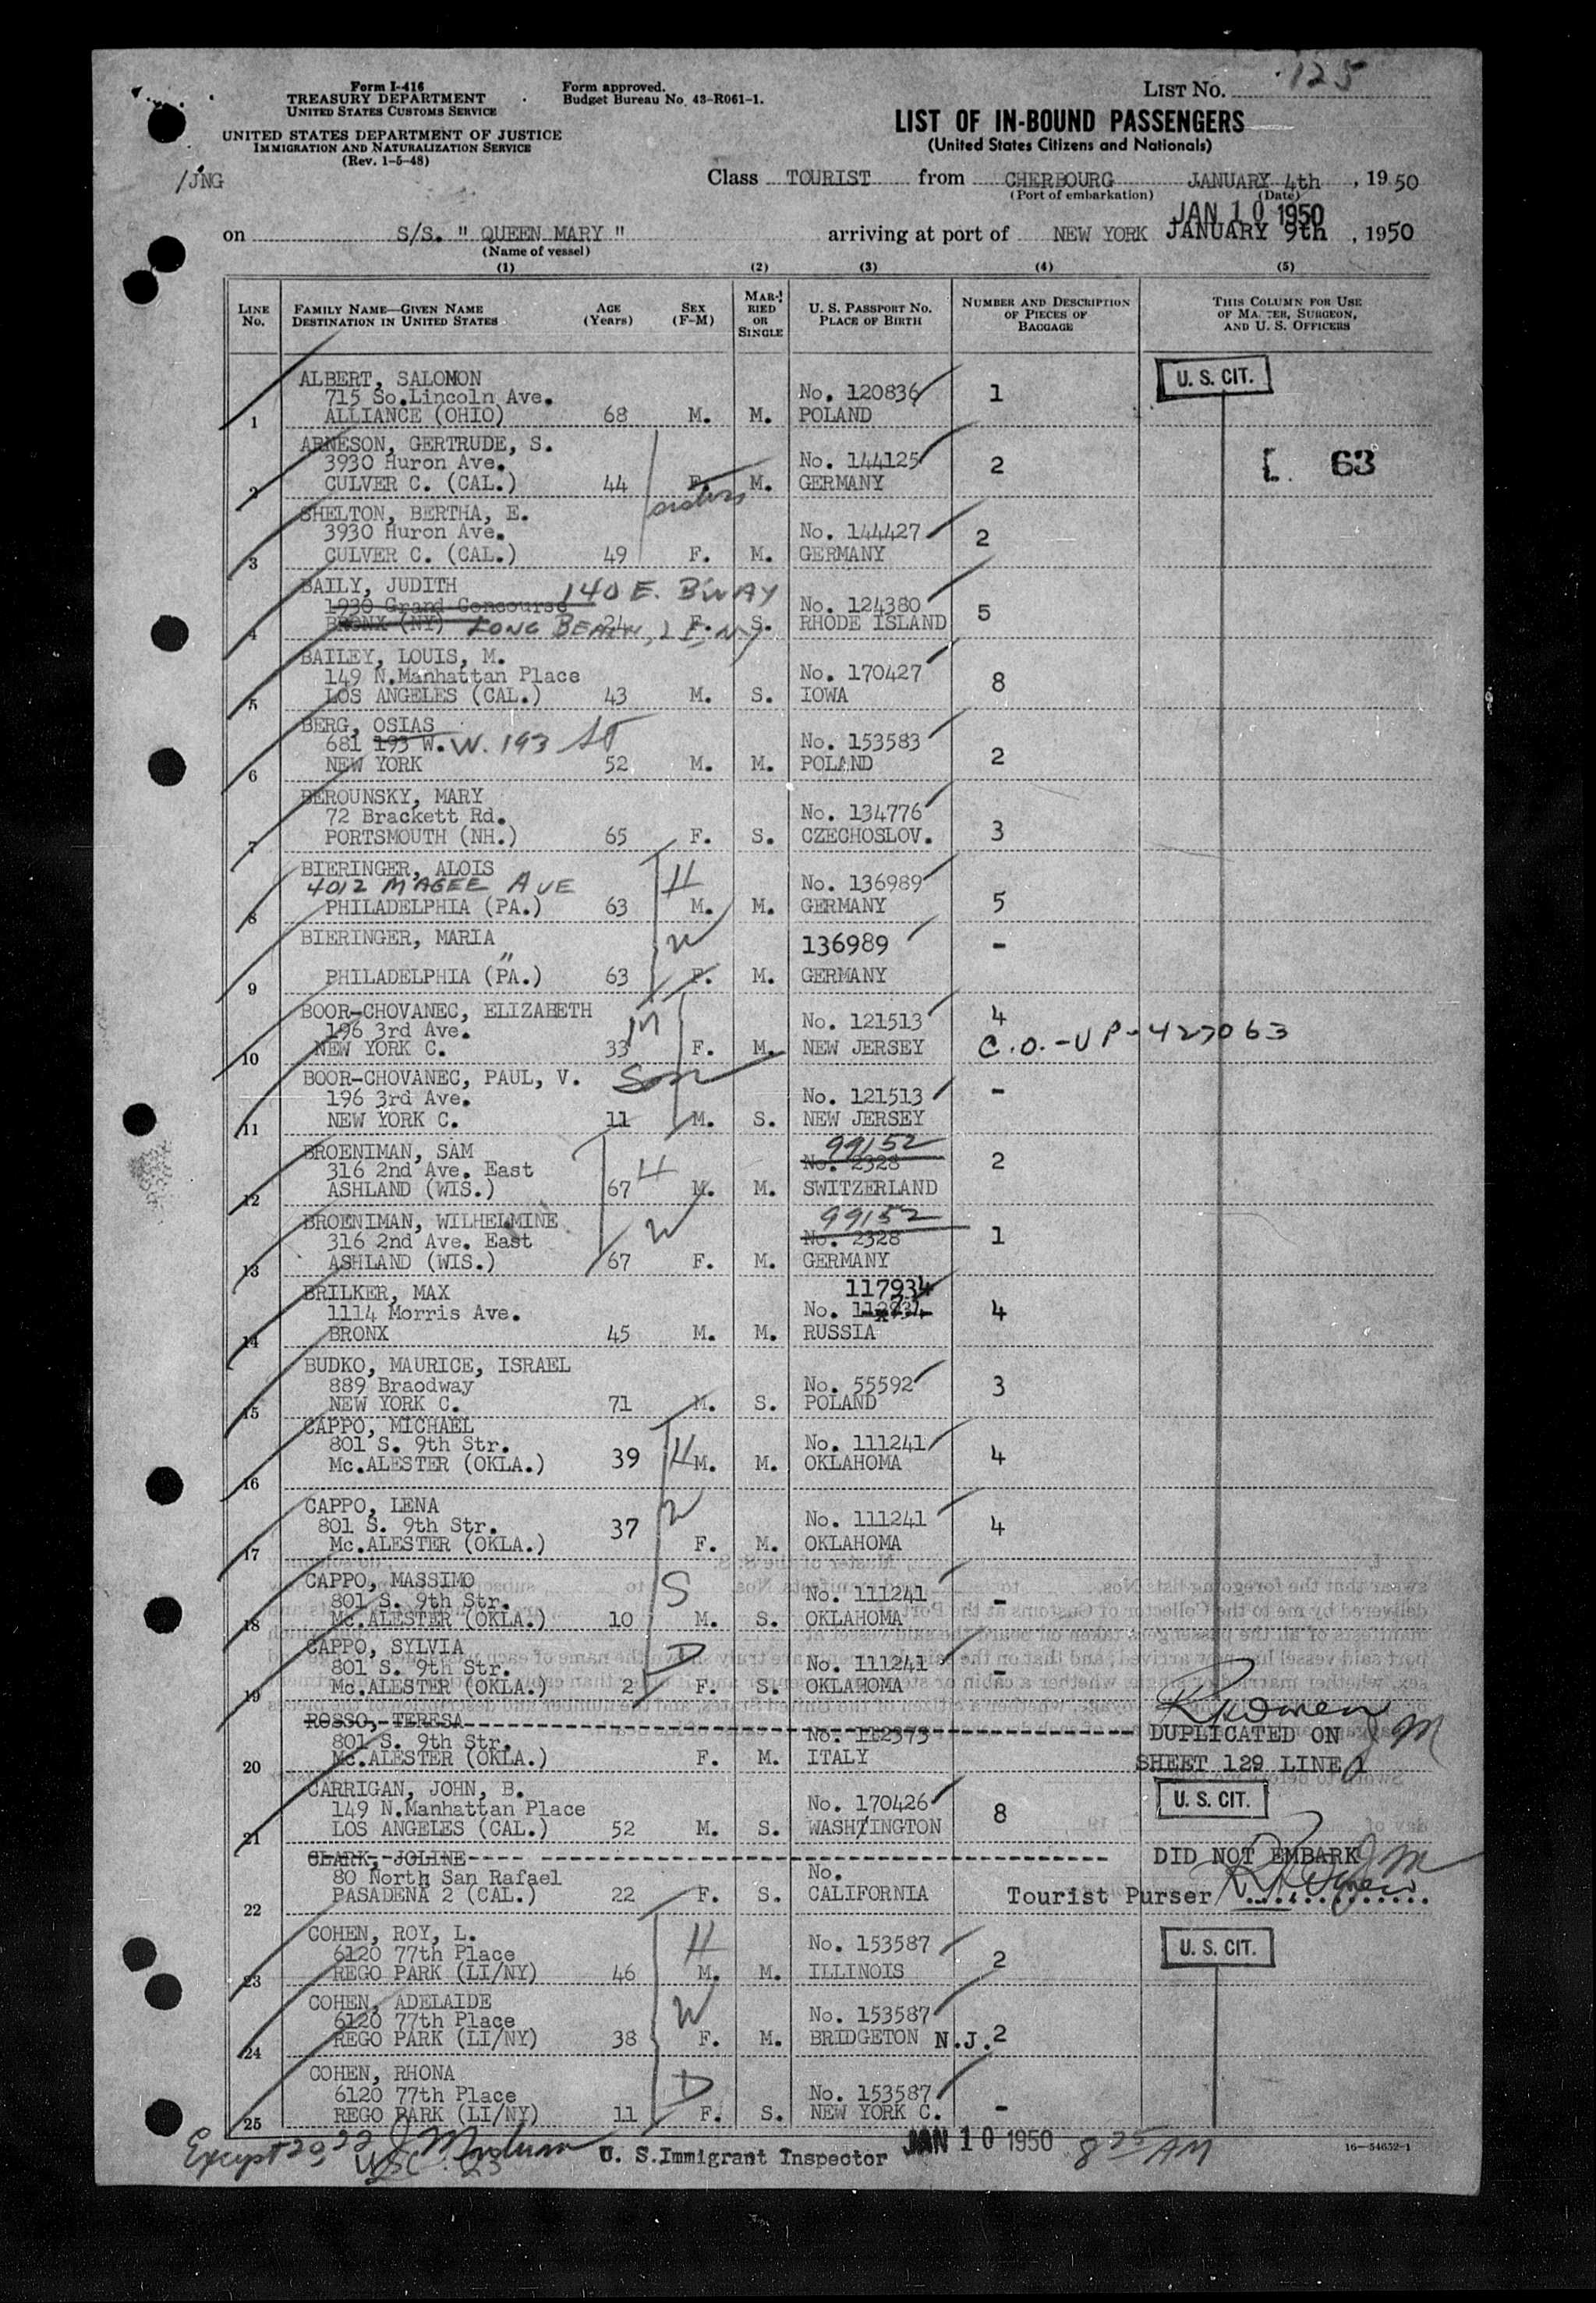 Form I-416
TREASURY DEPARTMENT
UNITED STATES CUSTOMS SERVICE
UNITED STATES DEPARTMENT OF JUSTICE
IMMIGRATION AND NATURALIZATION SERVICE
(Rev. 1-5-48)
/JNG
Form approved.
Budget Bureau No. 43-R061-1.
LIST NO. 125
LIST OF IN-BOUND PASSENGERS
(United States Citizens and Nationals)
Class TOURIST from CHERBOURG JANUARY 4th, 1950
(Port of embarkation) (Date)
JAN 10 1950
on S/S. " QUEEN MARY " arriving at port of NEW YORK JANUARY 9th, 1950
(Name of vessel)
(1) (2) (3) (4) (5)
LINE No. FAMILY NAME—GIVEN NAME DESTINATION IN UNITED STATES AGE (Years) SEX (F-M) MARRIED OR SINGLE U. S. PASSPORT NO. PLACE OF BIRTH NUMBER AND DESCRIPTION OF PIECES OF BAGGAGE THIS COLUMN FOR USE OF MASTER, SURGEON, AND U. S. OFFICERS
ALBERT, SALOMON U. S. CIT.
715 So.Lincoln Ave. No. 120836 1
1 ALLIANCE (OHIO) 68 M. M. POLAND
ARNESON, GERTRUDE, S.
3930 Huron Ave. No. 144125 2 63
2 CULVER C. (CAL.) 44 F. M. GERMANY
sisters
SHELTON, BERTHA, E.
3930 Huron Ave. No. 144427 2
3 CULVER C. (CAL.) 49 F. M. GERMANY
BAILY, JUDITH 140 E. B'WAY
1930 Grand Concourse No. 124380 5
4 BRONX (NY) LONG BEACH, L I, NY 24 F. S. RHODE ISLAND
BAILEY, LOUIS, M.
149 N.Manhattan Place No. 170427 8
5 LOS ANGELES (CAL.) 43 M. S. IOWA
BERG, OSIAS
681 193 W. W. 193 St No. 153583 2
6 NEW YORK 52 M. M. POLAND
BEROUNSKY, MARY
72 Brackett Rd. No. 134776 3
7 PORTSMOUTH (NH.) 65 F. S. CZECHOSLOV.
BIERINGER, ALOIS H
4012 MAGEE AVE No. 136989 5
8 PHILADELPHIA (PA.) 63 M. M. GERMANY
BIERINGER, MARIA W 136989 -
"
9 PHILADELPHIA (PA.) 63 F. M. GERMANY
BOOR-CHOVANEC, ELIZABETH 4
196 3rd Ave. M No. 121513 C.O.-UP-427063
10 NEW YORK C. 33 F. M. NEW JERSEY
BOOR-CHOVANEC, PAUL, V. Son
196 3rd Ave. No. 121513 -
11 NEW YORK C. 11 M. S. NEW JERSEY
BROENIMAN, SAM 99152
316 2nd Ave. East H No. 2328 2
12 ASHLAND (WIS.) 67 M. M. SWITZERLAND
BROENIMAN, WILHELMINE 99152
316 2nd Ave. East W No. 2328 1
13 ASHLAND (WIS.) 67 F. M. GERMANY
BRILKER, MAX 117934
1114 Morris Ave. No. 4
14 BRONX 45 M. M. RUSSIA
BUDKO, MAURICE, ISRAEL
889 Braodway No. 55592 3
15 NEW YORK C. 71 M. S. POLAND
CAPPO, MICHAEL
801 S. 9th Str. H No. 111241 4
16 Mc.ALESTER (OKLA.) 39 M. M. OKLAHOMA
CAPPO, LENA W
801 S. 9th Str. No. 111241 4
17 Mc.ALESTER (OKLA.) 37 F. M. OKLAHOMA
CAPPO, MASSIMO S
801 S. 9th Str. No. 111241 -
18 Mc.ALESTER (OKLA.) 10 M. S. OKLAHOMA
CAPPO, SYLVIA D
801 S. 9th Str. No. 111241 -
19 Mc.ALESTER (OKLA.) 2 F. S. OKLAHOMA
ROSSO, TERESA DUPLICATED ON JM
801 S. 9th Str. No. 112373
20 Mc.ALESTER (OKLA.) F. M. ITALY SHEET 129 LINE 1
CARRIGAN, JOHN, B. U. S. CIT.
149 N.Manhattan Place No. 170426 8
21 LOS ANGELES (CAL.) 52 M. S. WASHTINGTON
CLARK, JOLINE DID NOT EMBARK JM
80 North San Rafael No.
22 PASADENA 2 (CAL.) 22 F. S. CALIFORNIA Tourist Purser
COHEN, ROY, L. H U. S. CIT.
6120 77th Place No. 153587 2
23 REGO PARK (LI/NY) 46 M. M. ILLINOIS
COHEN, ADELAIDE W
6120 77th Place No. 153587
24 REGO PARK (LI/NY) 38 F. M. BRIDGETON N.J. 2
COHEN, RHONA D
6120 77th Place No. 153587 -
25 REGO PARK (LI/NY) 11 F. S. NEW YORK C.
Except 20 22 U. S.Immigrant Inspector JAN 10 1950 8 25 AM
USC 23
16—54652-1